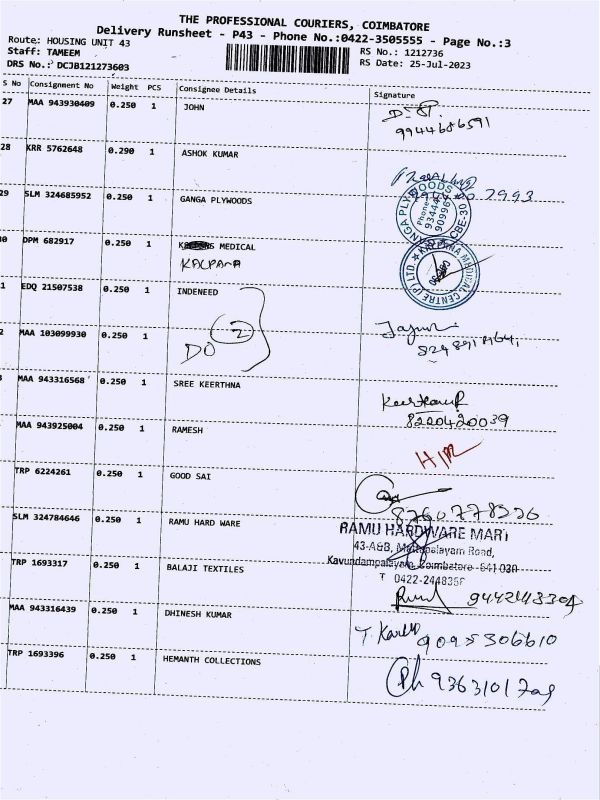 THE PROFESSIONAL COURIERS, COIMBATORE
Delivery Runsheet - P43 - Phone No.:0422-3505555 - Page No.:3
Route: HOUSING UNIT 43
Staff: TAMEEM
DRS No.: DCJB121273603
RS No.: 1212736
RS Date: 25-Jul-2023
S No Consignment No Weight PCS Consignee Details Signature
27 MAA 943930409 0.250 1 JOHN
9944686591
28 KRR 5762648 0.290 1 ASHOK KUMAR
29 SLM 324685952 0.250 1 GANGA PLYWOODS
7993
0 DPM 682917 0.250 1 MEDICAL
KALPANA
KALPANA MEDICAL CENTRE (P) LTD.
1 EDQ 21507538 0.250 1 INDENEED
2 MAA 103099930 0.250 1
DO 2
MAA 943316568 0.250 1 SREE KEERTHNA
8220420039
MAA 943925004 0.250 1 RAMESH
H/R
TRP 6224261 0.250 1 GOOD SAI
8760778326
SLM 324784646 0.250 1 RAMU HARD WARE
RAMU HARDWARE MART
43-A&B, Mettupalayam Road,
Kavundampalayam, Coimbatore - 641 030
TRP 1693317 0.250 1 BALAJI TEXTILES
0422-244835
MAA 943316439 0.250 1 DHINESH KUMAR
9095306610
TRP 1693396 0.250 1 HEMANTH COLLECTIONS